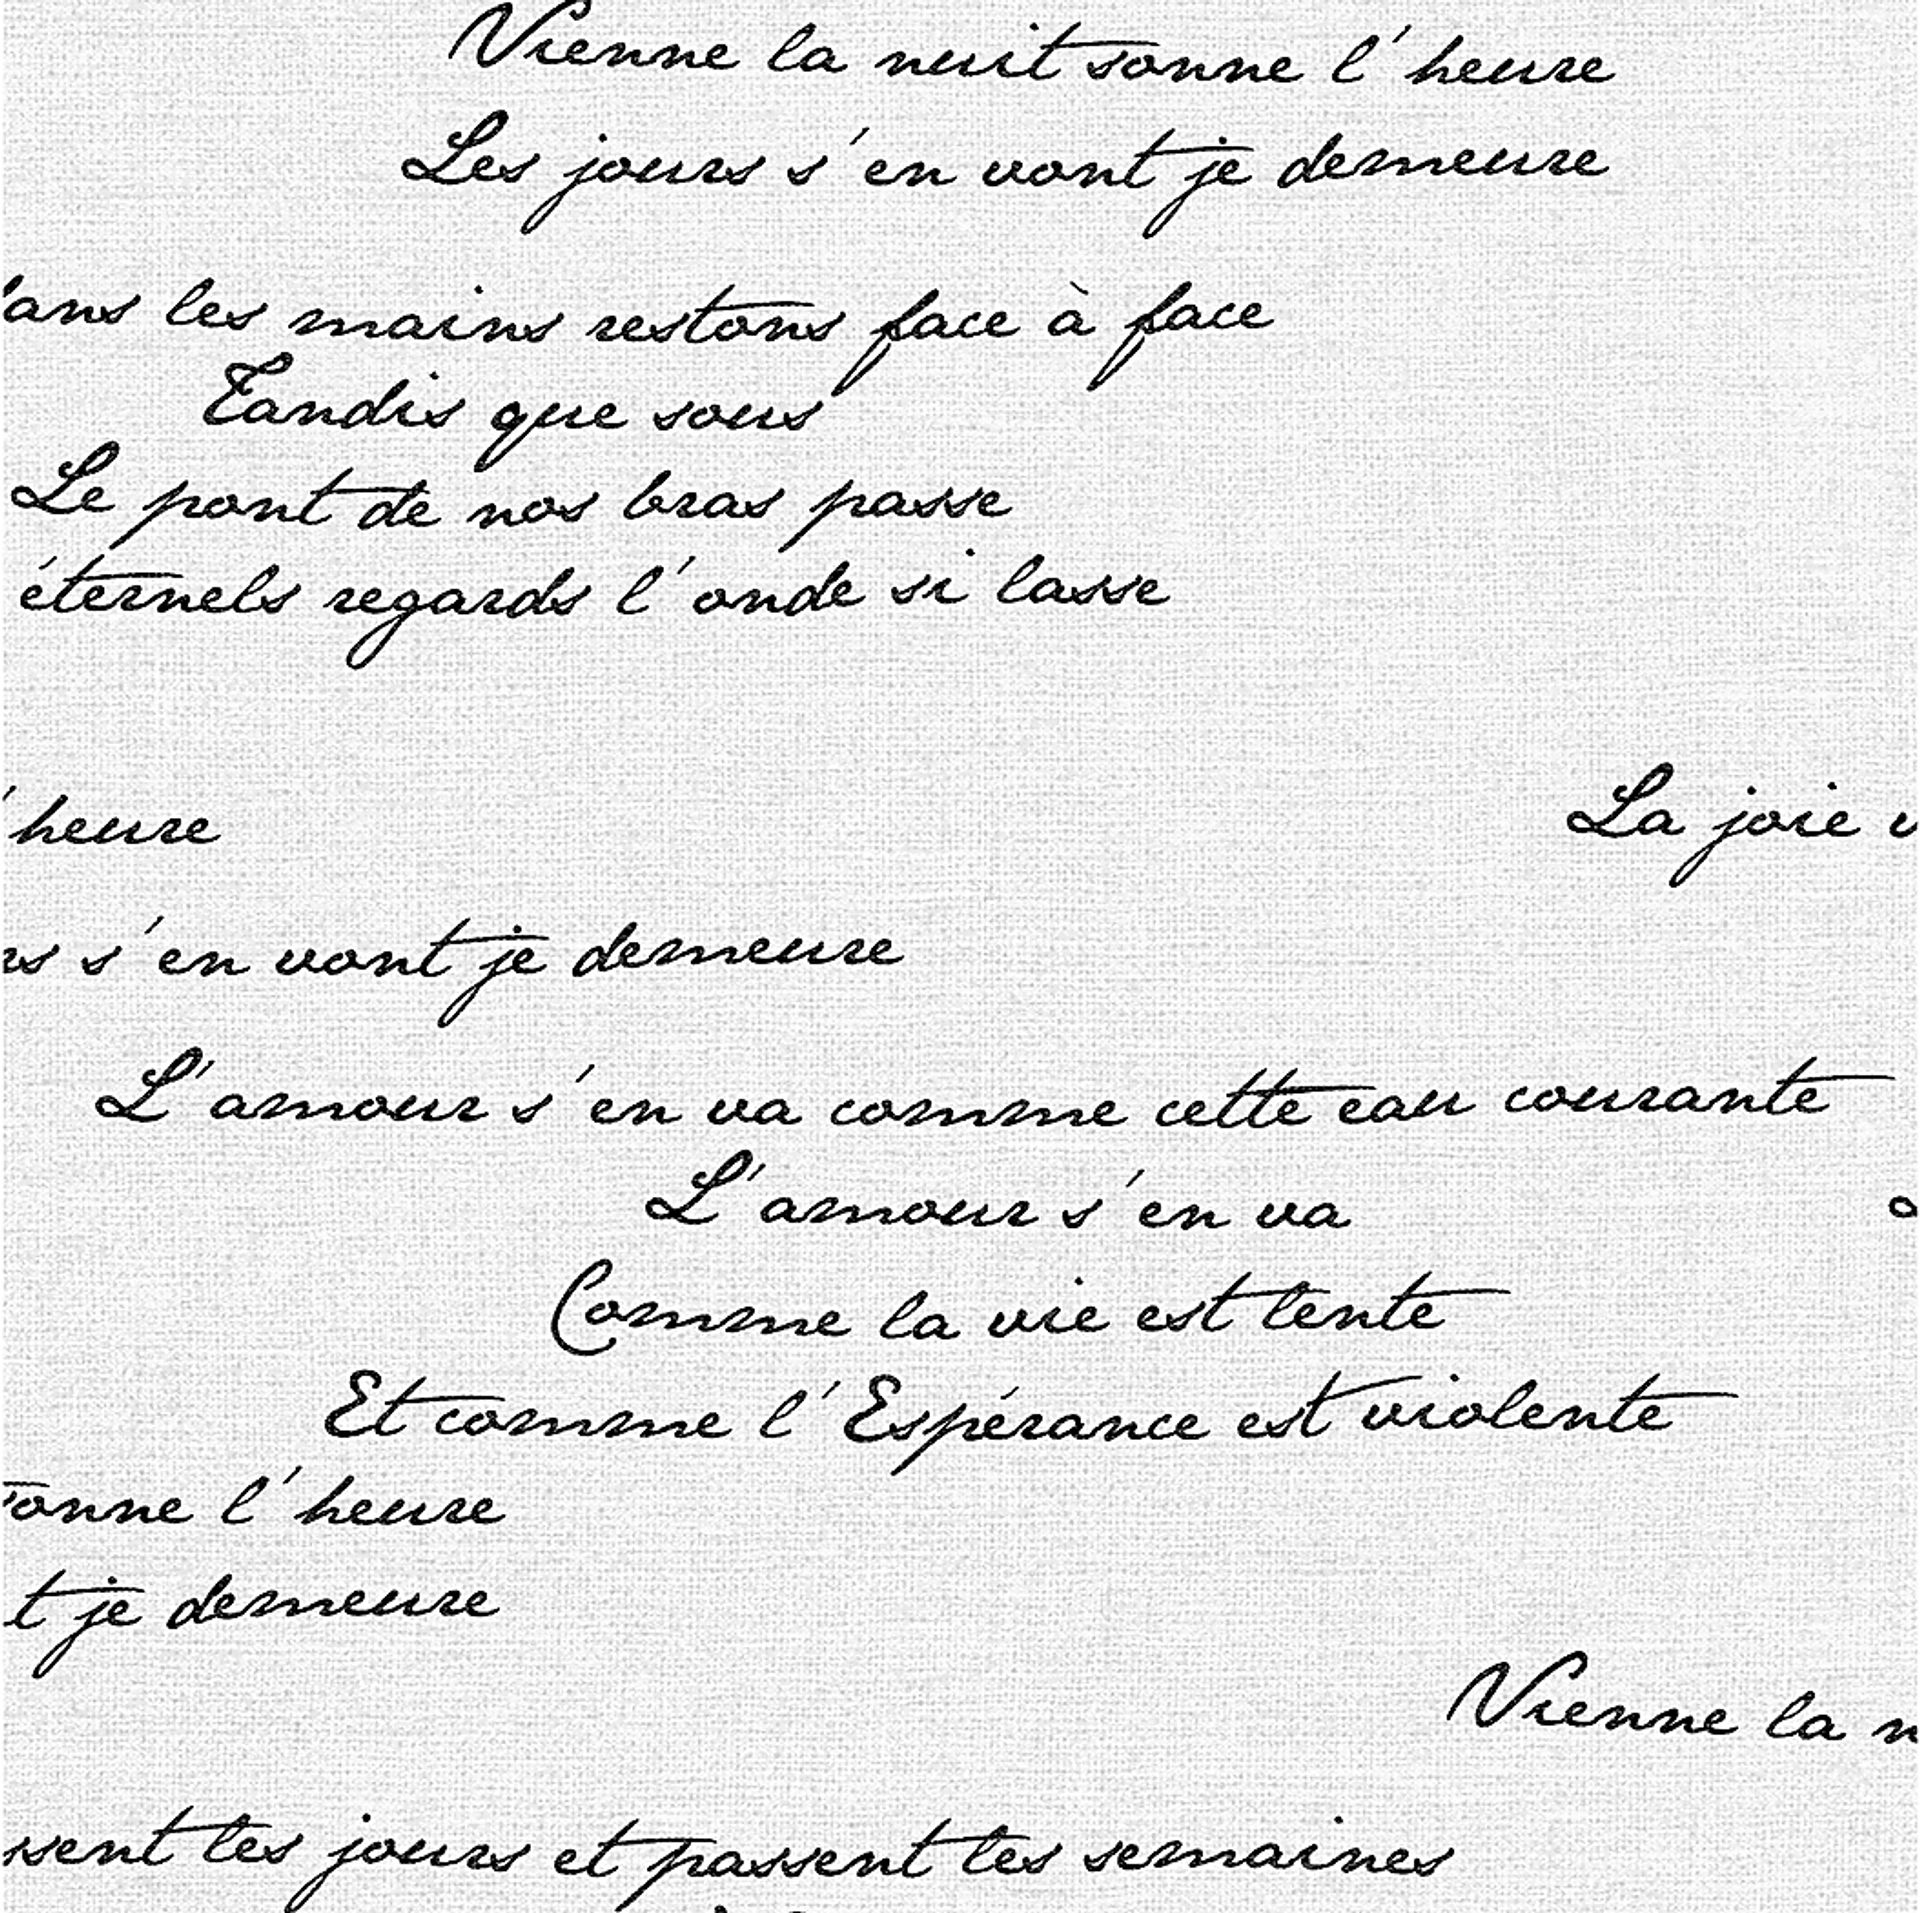 Vienne la nuit sonne l'heure
Les jours s'en vont je demeure
ans les mains restons face à face
Tandis que sous
Le pont de nos bras passe
éternels regards l'onde si lasse
'heure
La joie v
rs s'en vont je demeure
L'amour s'en va comme cette eau courante
L'amour s'en va
Comme la vie est lente
Et comme l'Espérance est violente
onne l'heure
t je demeure
Vienne la n
ssent les jours et passent les semaines